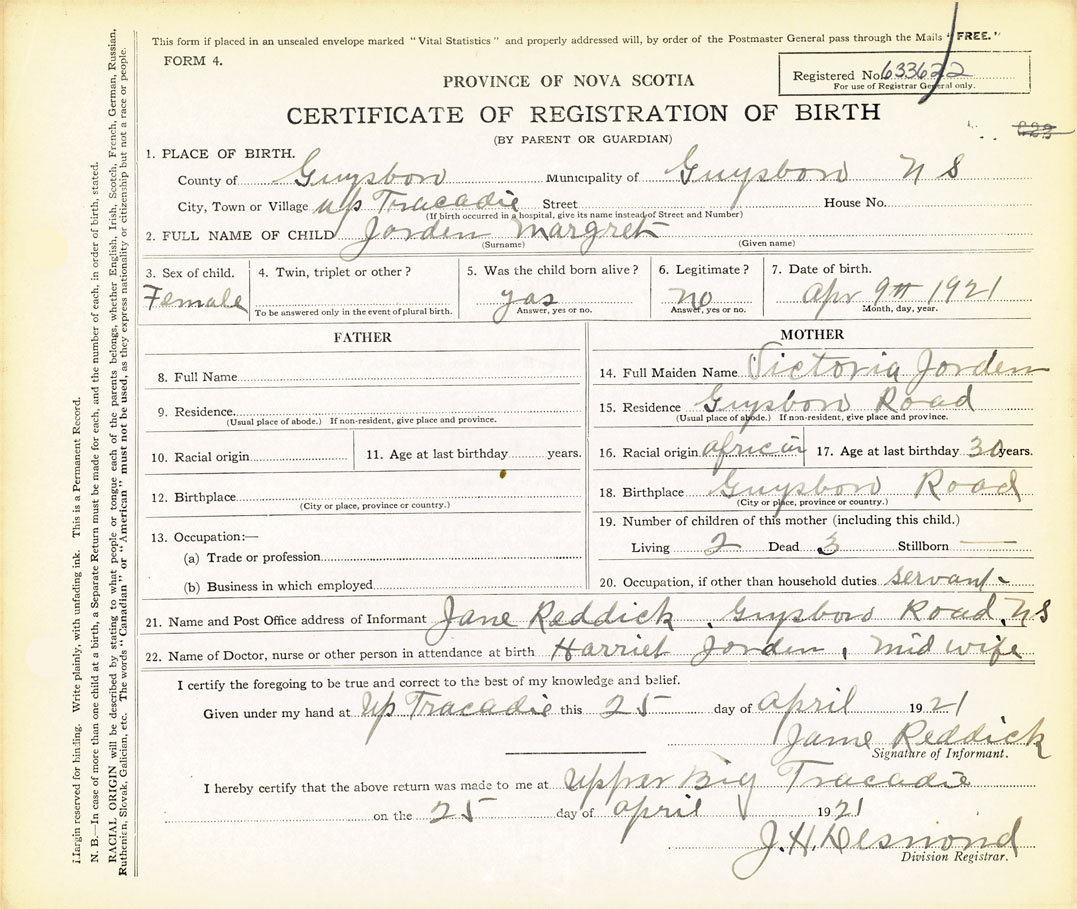 This form if placed in an unsealed envelope marked "Vital Statistics" and properly addressed will, by order of the Postmaster General pass through the Mails "FREE."
FORM 4.
Registered No. 633622
For use of Registrar General only.
PROVINCE OF NOVA SCOTIA
CERTIFICATE OF REGISTRATION OF BIRTH
(BY PARENT OR GUARDIAN)
1. PLACE OF BIRTH.
County of Guysboro Municipality of Guysboro N S
City, Town or Village up Tracadie Street House No.
(If birth occurred in a hospital, give its name instead of Street and Number)
2. FULL NAME OF CHILD Jorden Margret
(Surname) (Given name)
3. Sex of child. 4. Twin, triplet or other? 5. Was the child born alive? 6. Legitimate? 7. Date of birth.
Female yas no Apr 9th 1921
To be answered only in the event of plural birth. Answer, yes or no. Answer, yes or no. Month, day, year.
FATHER
8. Full Name
9. Residence.
(Usual place of abode.) If non-resident, give place and province.
10. Racial origin 11. Age at last birthday years.
12. Birthplace
(City or place, province or country.)
13. Occupation:—
(a) Trade or profession
(b) Business in which employed
MOTHER
14. Full Maiden Name Victoria Jorden
15. Residence Guysboro Road
(Usual place of abode.) If non-resident, give place and province.
16. Racial origin african 17. Age at last birthday 30 years.
18. Birthplace Guysboro Road
(City or place, province or country.)
19. Number of children of this mother (including this child.)
Living 2 Dead 3 Stillborn —
20. Occupation, if other than household duties servant
21. Name and Post Office address of Informant Jane Reddick, Guysboro Road, NS
22. Name of Doctor, nurse or other person in attendance at birth Harriet Jorden, Mid wife
I certify the foregoing to be true and correct to the best of my knowledge and belief.
Given under my hand at Up Tracadie this 25 day of April 1921
Jame Reddick
Signature of Informant.
I hereby certify that the above return was made to me at Upper Big Tracadie
on the 25 day of April 1921
J. H. Desmond
Division Registrar.
Margin reserved for binding. Write plainly, with unfading ink. This is a Permanent Record.
N. B.—In case of more than one child at a birth, a Separate Return must be made for each, and the number of each, in order of birth, stated.
RACIAL ORIGIN will be described by stating to what people or tongue each of the parents belongs, whether English, Irish, Scotch, French, German, Russian,
Ruthenian, Slovak, Galician, etc. The words "Canadian" or "American" must not be used, as they express nationality or citizenship but not a race or people.